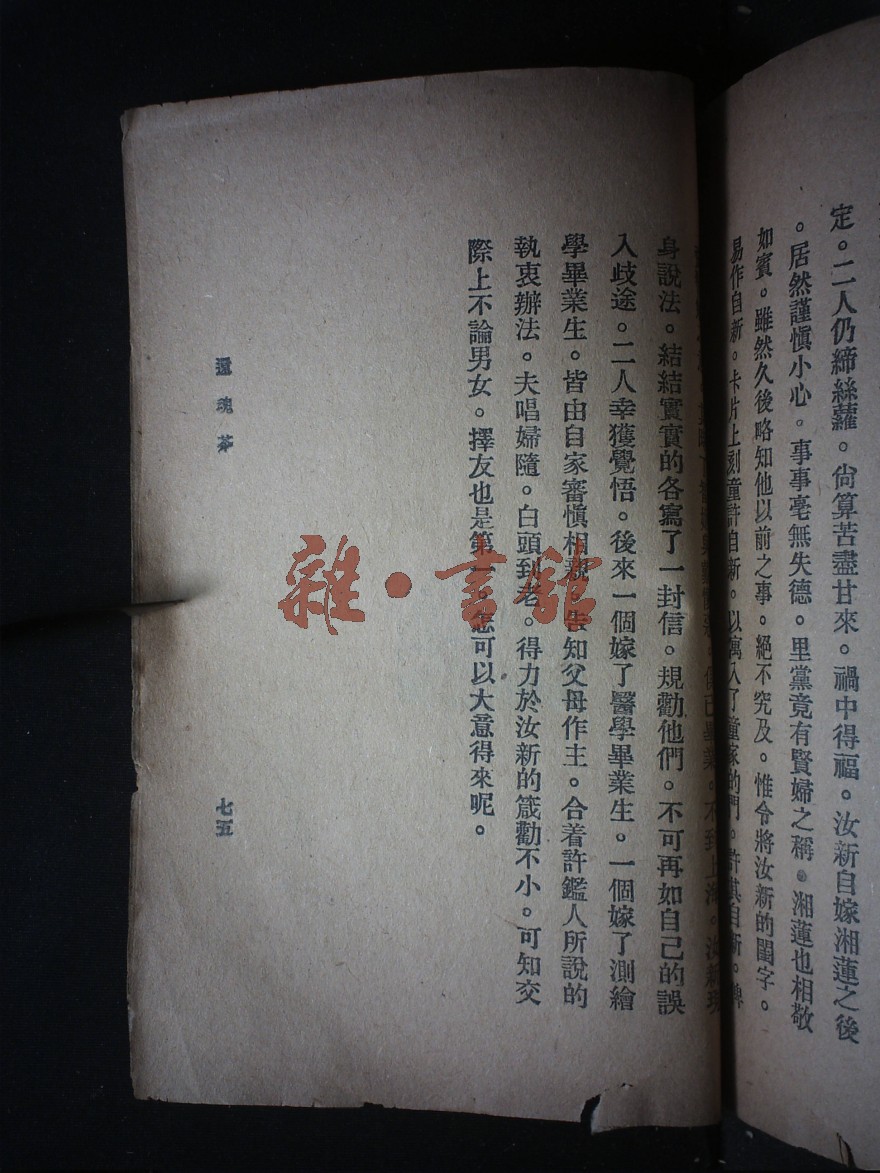 定。二人仍締絲蘿。尙算苦盡甘來。禍中得福。汝新自嫁湘蓮之後
。居然謹愼小心。事事毫無失德。里黨竟有賢婦之稱。湘蓮也相敬
如賓。雖然久後略知他以前之事。絕不究及。惟令將汝新的閨字。
易作自新。卡片上刻童許自新。以寓入了童家的門。許其自新。
身說法。結結實實的各寫了一封信。規勸他們。不可再如自己的誤
入歧途。二人幸獲覺悟。後來一個嫁了醫學畢業生。一個嫁了測繪
學畢業生。皆由自家審愼相親。告知父母作主。合着許鑑人所說的
執衷辦法。夫唱婦隨。白頭到老。得力於汝新的箴勸不小。可知交
際上不論男女。擇友也是第一。怎可以大意得來呢。
還魂茶
七五
雜·書館